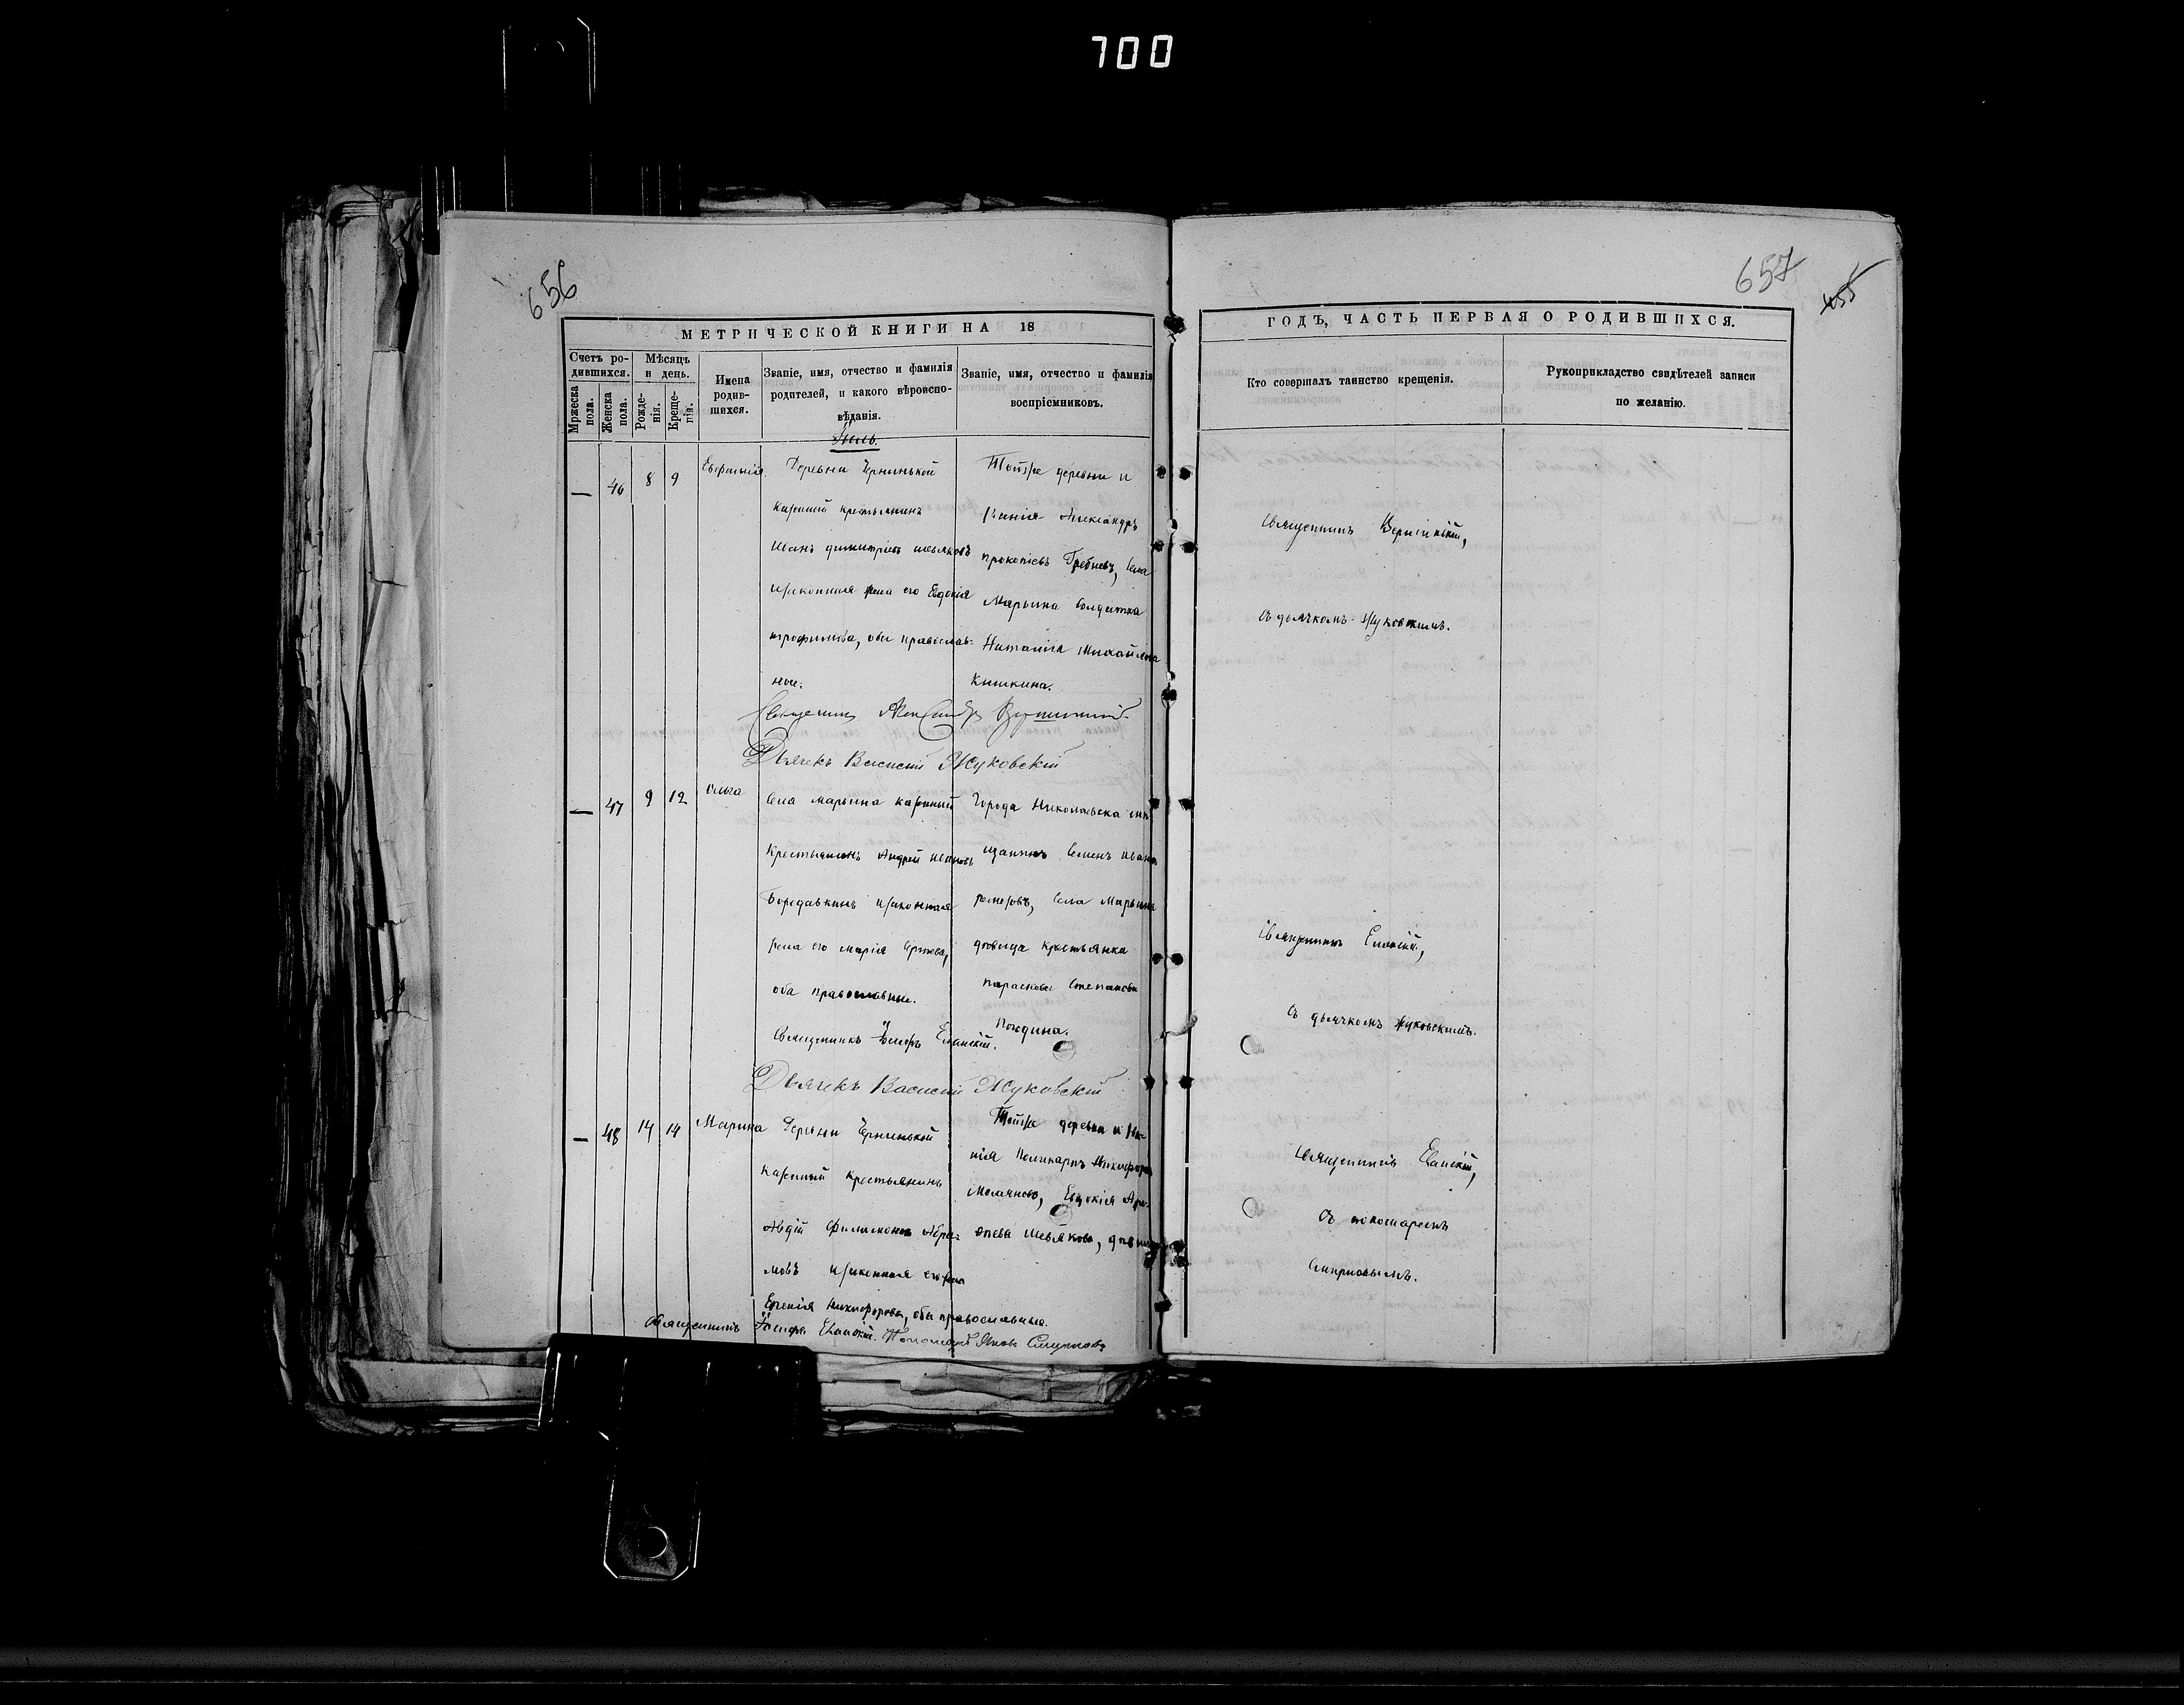 700
656
МЕТРИЧЕСКОЙ КНИГИ НА 18
Счетъ ро-
дившихся.
Мѣсяцъ
и день.
Имена
родив-
шихся.
Званіе, имя, отчество и фамилія
родителей, и какого вѣроиспо-
вѣданія.
Званіе, имя, отчество и фамилія
воспріемниковъ.
Мржеска
пола.
Женска
пола.
Рожде-
нія.
Креще-
нія.
46 8 9
Деревни Чернинькой
казенный крестьянинъ
Иванъ Димитріевъ Шевяковъ
и законная жена его Евдокія
Трофимова, оба православ-
ные.
Тойже деревни и
званія Александръ
Прокопіевъ Гребневъ, села
Марьина солдатка
Наталія Михайлова
Кишкина.
Священникъ Александръ
Дьячекъ Василій Жуковскій
47 9 12 Ольга
Села Марьина казенный
крестьянинъ Андрей Ивановъ
Бородавкинъ и законная
жена его Марія
оба православные.
Города Николаевска мѣ-
щанинъ Семенъ Иванов
села Марьина
дѣвица крестьянка
Параскева Степанова
Погодина.
Священникъ Іосифъ Еланскій.
Дьячекъ Василій Жуковскій
48 14 14 Марина
Деревни Чернинькой
казенный крестьянинъ
Авдій Филимоновъ Абра-
мовъ и законная его жена
Евгенія Никифорова, оба православные.
Тойже деревни и зва-
нія Поликарпъ Никифоровъ
Евдокія
Шевякова, дѣвица
Священникъ Іосифъ Еланскій. Пономарь Яковъ Смирновъ
657
455
ГОДЪ, ЧАСТЬ ПЕРВАЯ О РОДИВШИХСЯ.
Кто совершалъ таинство крещенія.
Рукоприкладство свидѣтелей записи
по желанію.
Священникъ
съ дьячкомъ Жуковскимъ.
Священникъ Еланскій,
съ дьячкомъ Жуковскимъ.
Священникъ Еланскій,
съ пономаремъ
Смирновымъ.